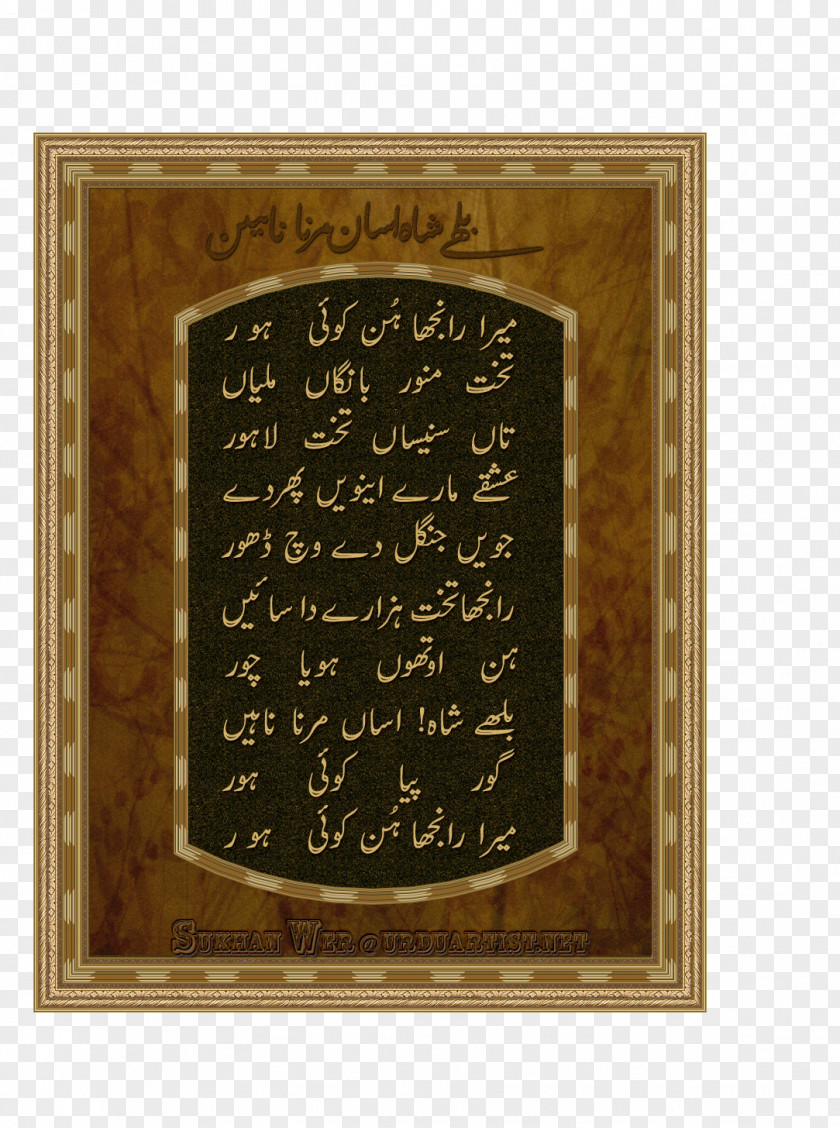 بلھے شاہ اساں مرنا ناہیں
میرا رانجھا ہُن کوئی ہور
تخت منور بانگاں ملیاں
تاں سنیساں تخت لاہور
عشقے مارے اینویں پھردے
جویں جنگل دے وچ ڈھور
رانجھا تخت ہزارے دا سائیں
ہن اوتھوں ہویا چور
بلھے شاہ! اساں مرنا ناہیں
گور پیا کوئی ہور
میرا رانجھا ہُن کوئی ہور
Sukhan Wer @ urduartist.net